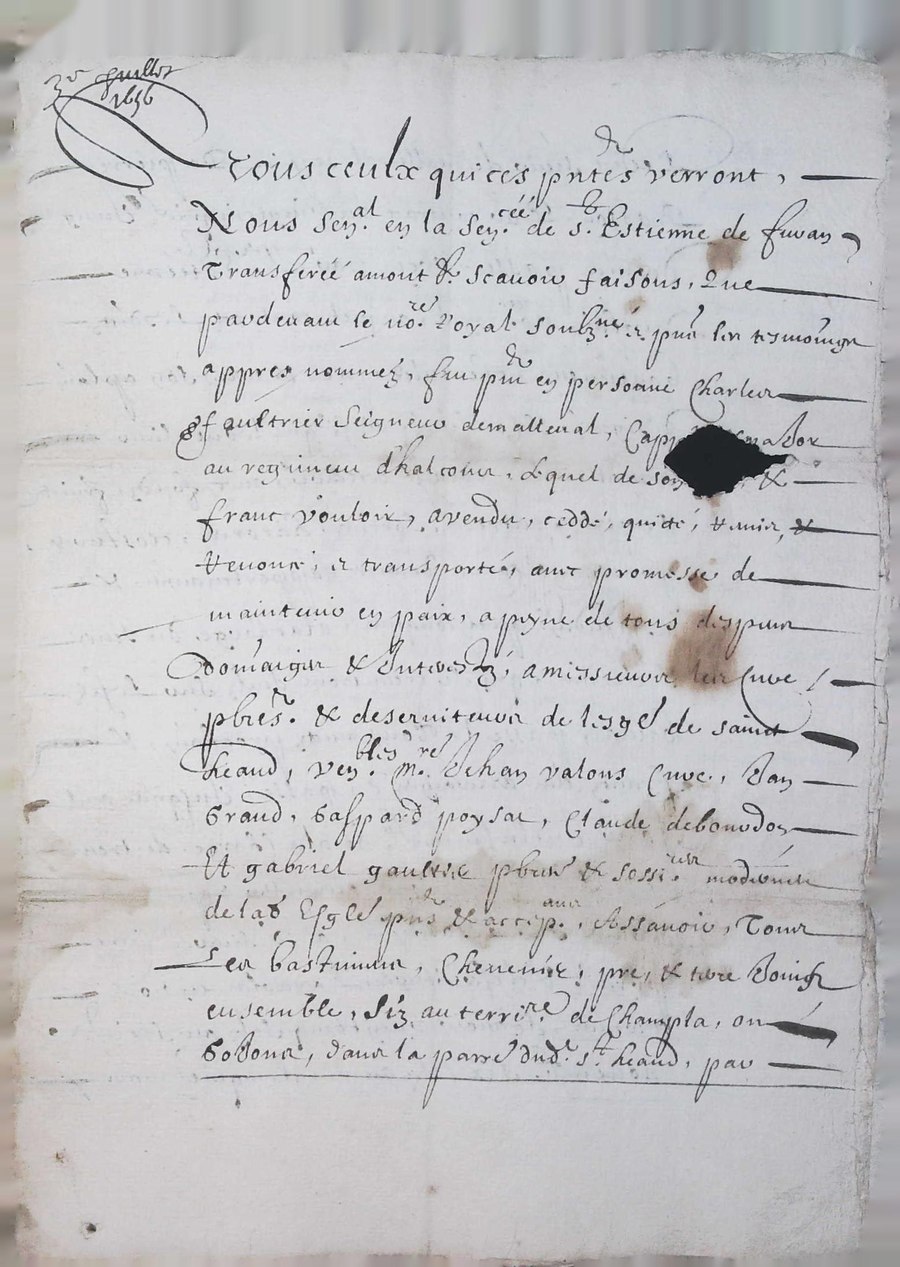 3e Juillet
1656
A Tous ceulx qui ces pntes verront,
Nous Senal en la Sencée de St Estienne de furan
Transferée amont & scavoir faisons, Que
pardevant le nore Royal soubzné & pnts les tesmoings
appres nommez, fut pnt en personne Charles
faultrier Seigneur de malleval, Capp
au regiment d'halcourt, Lequel de son &
franc vouloir, a vendu, ceddé, quicté, remis &
renoncé, et transporté, avec promesse de
maintenir en paix, a peyne de tous despens
dommaiges & Interestz, a messieurs les Cure
pbres & deserviteurs de lesglé de sainct
heand, venbles mre Jehan valous Cure, Jan
Grand, Gaspard poysat, Claude debourdon
Et gabriel gaultier pbres & sossires modernes
de lad Esglé pnts & accep. Assavoir, Tous
Les bastiments, Chenevier, pre, & terre Joincts
ensemble, Siz au terrire de Champla, ou
dans la parré dudt St heand, par